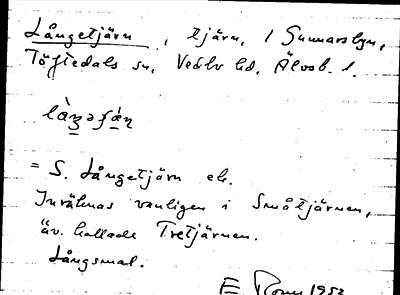 Långetjärn, tjärn, i Gunnarsbyn,
Töftedals sn, Vedbo hd, Älvsb. l.
= S. Långetjärn ek.
Inräknas vanligen i Småtjärnen,
äv. kallade Tretjärnen.
Långsmal.
E. 1952